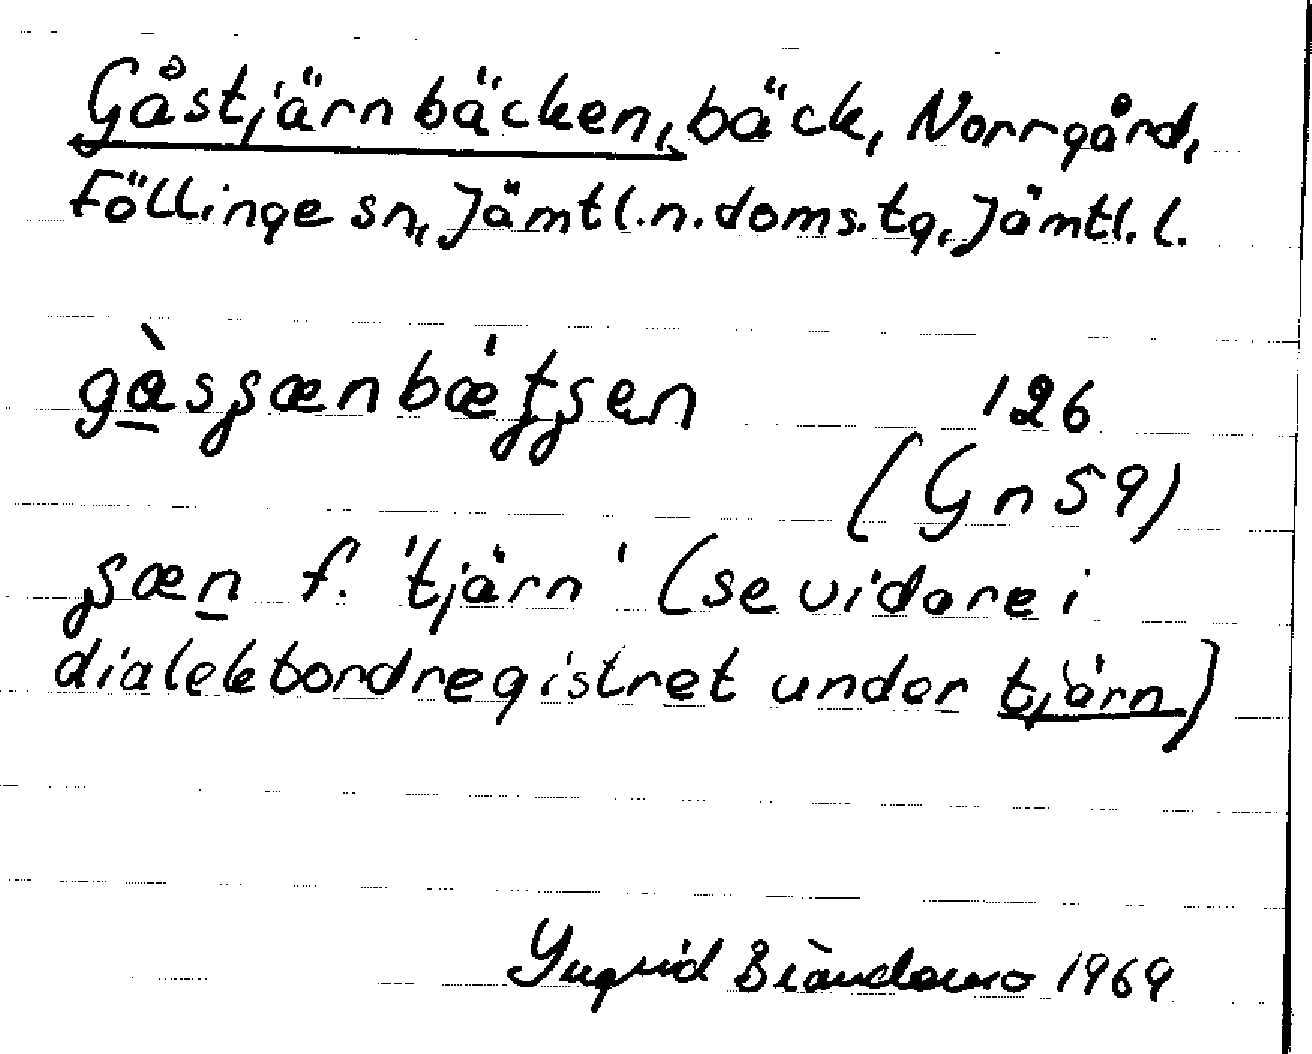 Gåstjärnbäcken, bäck, Norrgård,
Föllinge sn, Jämtl.n.doms.tg, Jämtl.l.
126
(Gn 59)
f. 'tjärn' (se vidare i
dialektordregistret under tjärn)
Ingrid 1969